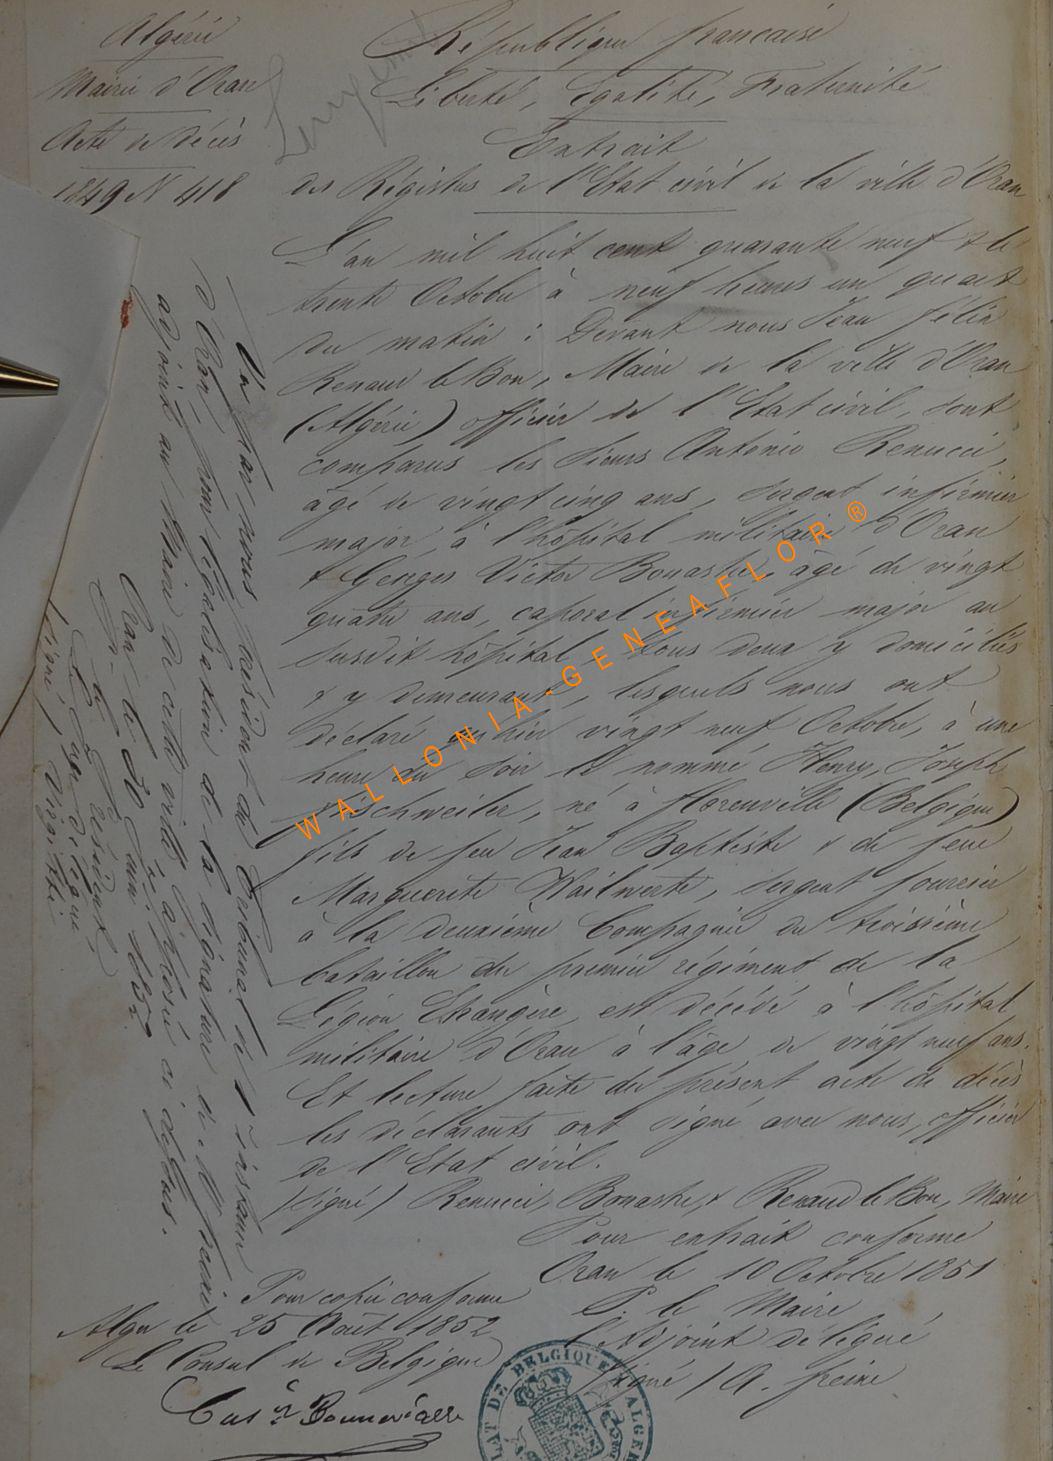 Algérie
Mairie d'Oran
Acte de décès
1849 N 418
République française
Liberté, Egalité, Fraternité
Extrait
des Régistres de l'Etat civil de la ville d'Oran
L'an mil huit cent quarante neuf & le
trente Octobre à neuf heures un quart
du matin : Devant nous Jean Félix
Renaud le Bon, Maire de la ville d'Oran
(Algérie) officier de l'Etat civil, sont
comparus les Sieurs Antonio Renucci,
âgé de vingt cinq ans, Sergent infirmier
major, à l'hôpital militaire d'Oran
& Georges Victor Bonastre, âgé de vingt
quatre ans, caporal infirmier major au
susdit hôpital, tous deux y domiciliés
& y demeurant, lesquels nous ont
déclaré qu'hier vingt neuf Octobre, à une
heure du soir le nommé Henry, Joseph
né à florenville (Belgique)
fils de feu Jean Baptiste & de feue
Marguerite sergent fourrier
à la deuxième Compagnie du troisième
bataillon du premier régiment de la
Légion Etrangère, est décédé à l'hôpital
militaire d'Oran à l'âge de vingt neuf ans.
Et lecture faite du présent acte de décès
les déclarants ont signé avec nous, officier
de l'Etat civil.
(signé) Renucci, Bonastre, & Renaud le Bon, Maire
Pour extrait conforme
Oran le 10 Octobre 1851
P. le Maire
l'Adjoint délégué
signé / A. freire
Vu par nous président du Tribunal de 1e instance
d'Oran, pour légalisation de la signature de M
adjoint au Maire de cette ville apposée ci dessus.
Oran le 30 1852
P. le Président
Le Juge délégué
(signé)
Pour copie conforme
Alger le 25 Aout 1852
Le Consul de Belgique
WALLONIA-GENEAFLOR ®
LAT DE BELGIQUE A ALGER